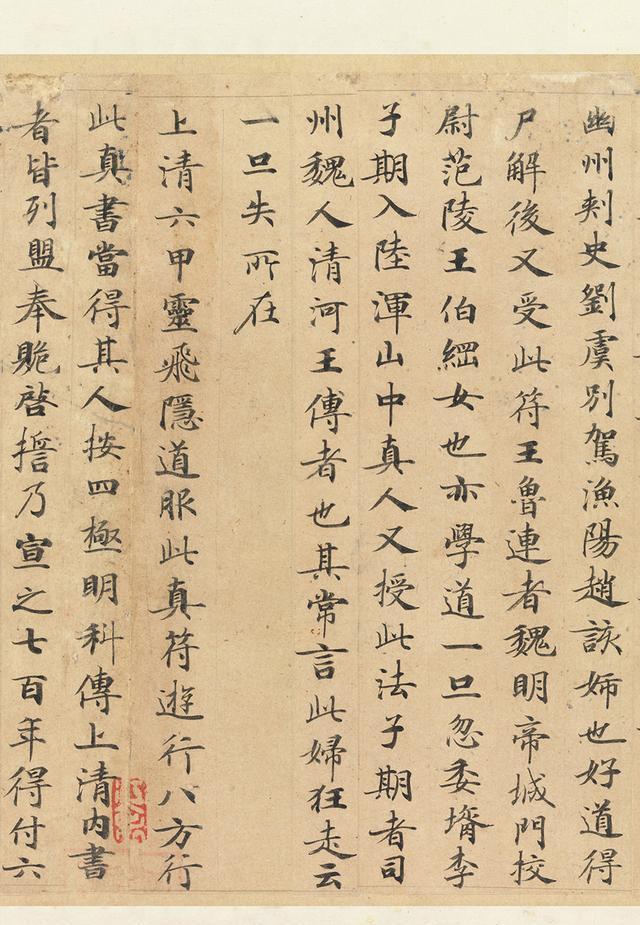 幽州刺史劉虞別駕漁陽趙該姉也好道得
尸解後又受此符王魯連者魏明帝城門校
尉范陵王伯綱女也亦學道一旦忽委壻李
子期入陸渾山中真人又授此法子期者司
州魏人清河王傅者也其常言此婦狂走云
一旦失所在
上清六甲靈飛隱道服此真符遊行八方行
此真書當得其人按四極明科傳上清內書
者皆列盟奉贶啓擔乃宣之七百年得付六